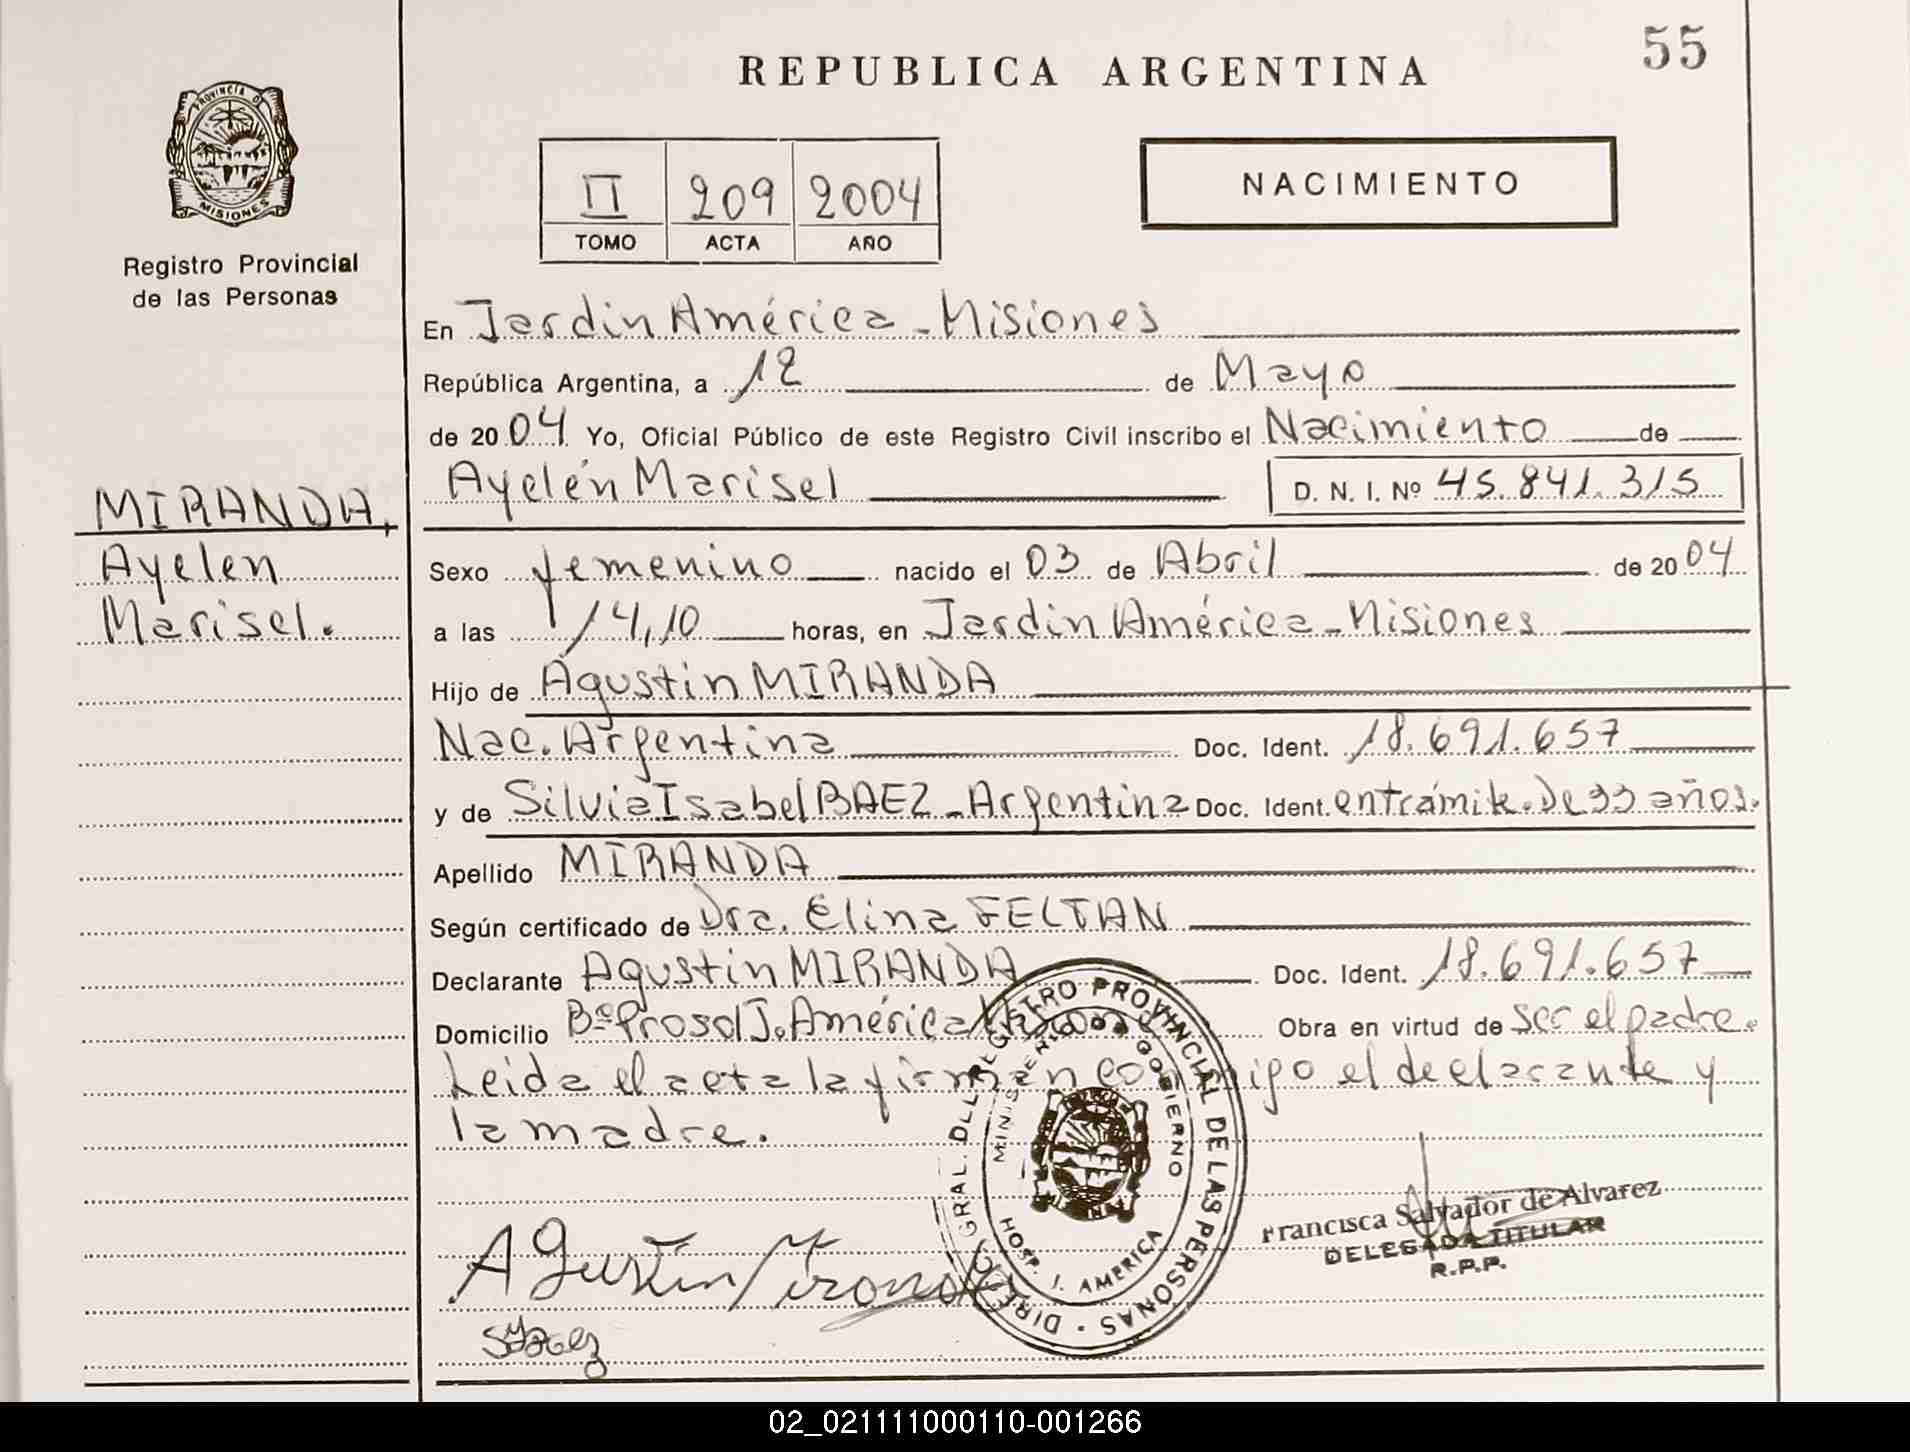 55
REPUBLICA ARGENTINA
PROVINCIA DE
MISIONES
Registro Provincial
de las Personas
II 209 2004
TOMO ACTA AÑO
NACIMIENTO
En Jardin América - Misiones
República Argentina, a 12 de Mayo
de 2004 Yo, Oficial Público de este Registro Civil inscribo el Nacimiento de
Ayelén Marisel D. N. I. Nº 45.841.315
MIRANDA,
Ayelen
Marisel.
Sexo femenino nacido el 03 de Abril de 2004
a las 14,10 horas, en Jardin América - Misiones
Hijo de Agustin MIRANDA
Nac. Argentina Doc. Ident. 18.691.657
y de Silvia Isabel BAEZ - Argentina Doc. Ident. en trámite. De 33 años.
Apellido MIRANDA
Según certificado de Dra. Elina FELTAN
Declarante Agustin MIRANDA Doc. Ident. 18.691.657
Domicilio Bº Prosol J. América Misiones Obra en virtud de ser el padre.
Leida el acta la firman conmigo el declarante y
la madre.
DIREC. GRAL. DEL REGISTRO PROVINCIAL DE LAS PERSONAS
MINISTERIO DE GOBIERNO
HOSP. J. AMERICA
Francisca Salvador de Alvarez
DELEGADA TITULAR
R.P.P.
Agustin Miranda
02_021111000110-001266